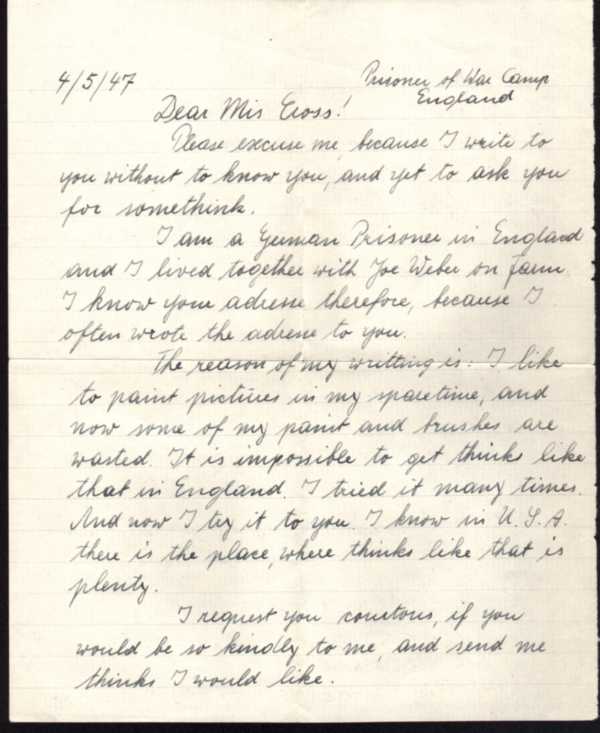 4/5/47
Prisoner of War Camp
England
Dear Mis Cross!
Please excuse me, because I write to
you without to know you, and yet to ask you
for somethink.
I am a German Prisoner in England
and I lived together with Joe Weber on farm.
I know your adresse therefore, because I
often wrote the adresse to you.
The reason of my writting is: I like
to paint pictures in my sparetime, and
now some of my paint and brushes are
wasted. It is impossible to get thinks like
that in England. I tried it many times.
And now I try it to you. I know in U.S.A.
there is the place, where thinks like that is
plenty.
I request you courtous, if you
would be so kindly to me, and send me
thinks I would like.